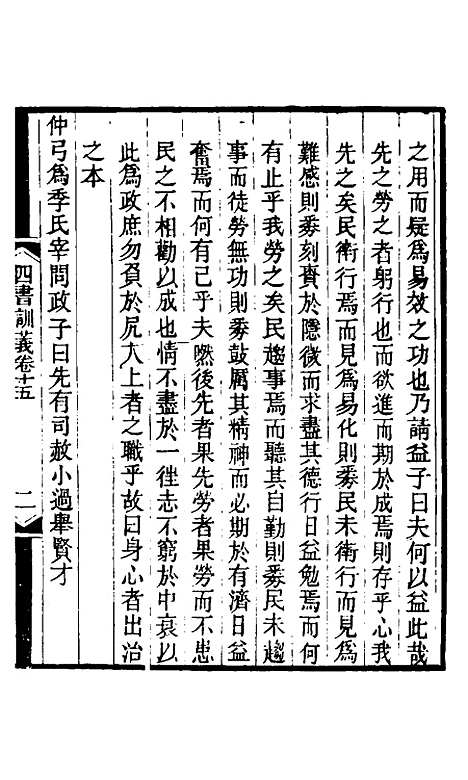 之用而疑爲易效之功也乃請益子曰夫何以益此哉
先之勞之者躬行也而欲進而期於成焉則存乎心我
先之矣民衛行焉而見爲易化則務民未衛行而見爲
難感則務刻責於隱微而求盡其德行日益勉焉而何
有止乎我勞之矣民趨事焉而聽其自勤則務民未趨
事而徒勞無功則務鼓厲其精神而必期於有濟日益
奮焉而何有已乎夫然後先者果先勞者果勞而不患
民之不相勸以成也情不盡於一徃志不窮於中衰以
此爲政庶勿負於凥人上者之職乎故曰身心者出治
之本
仲弓爲季氏宰問政子曰先有司赦小過舉賢才
四書訓義卷十五
二